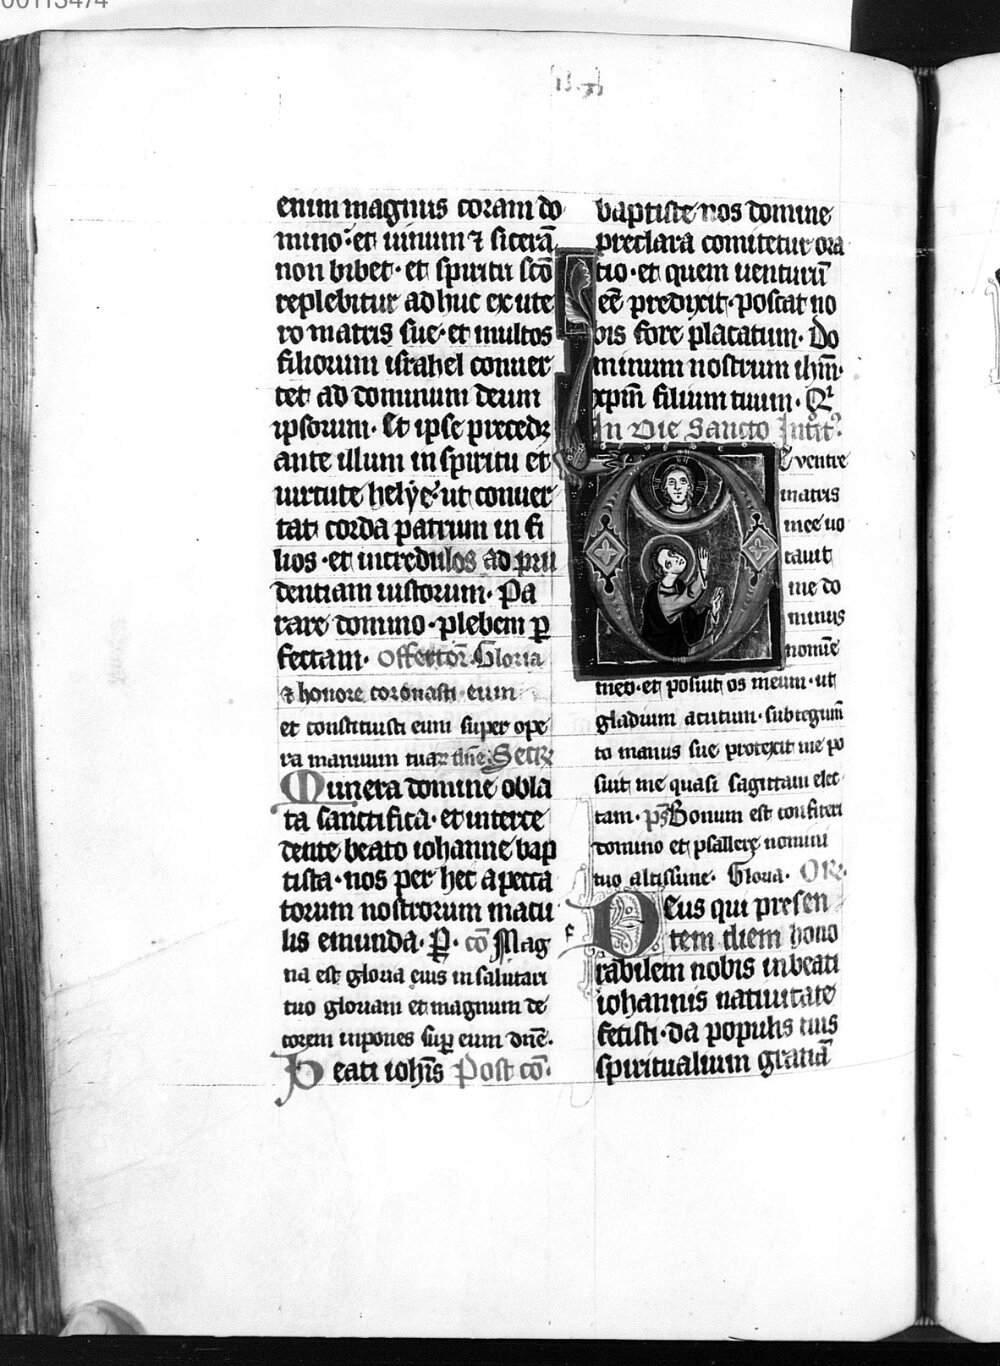 00113474
enim magnus coram do
mino· et uinum ⁊ sicerā
non bibet· et spiritu scō
replebitur adhuc ex ute
ro matris sue· et multos
filiorum israhel conuer
tet ad dominum deum
ipsorum· Et ipse precedꝫ
ante illum in spiritu et
uirtute helye· ut conuer
tat corda patrum in fi
lios· et incredulos ad pru
dentiam iustorum· Pa
rare domino· plebem ꝑ
fectam· Offertor̄· Gloria
⁊ honore coronasti· eum
et constituisti eum super ope
ra manuum tuaꝝ dn̄e· Secr̄
Munera domine obla
ta sanctifica· et interce
dente beato iohanne bap
tista· nos per hec a pecca
torum nostrorum macu
lis emunda· P̄· cō Mag
na est gloria eius in salutari
tuo gloriam et magnum de
corem inpones suꝑ eum dn̄e·
Beati ioh̄is Post cō·
baptiste nos domine
preclara comitetur ora
tio· et quem uenturū
eē predixit· poscat no
bis fore placatum· Do
minum nostrum ihm̄·
xpm̄ filium tuum· Qi
In Die Sancto Introit᾽
De uentre
matris
mee uo
cauit
me do
minus
nomīe
meo· et posuit os meum· ut
gladium acutum· sub tegum̄
to manus sue protexit me po
suit me quasi sagittam elec
tam· ps̄ Bonum est confiteri
domino et psallere nomini
tuo altissime· Gloria· OR̄·
Deus qui presen
tem diem hono
rabilem nobis in beati
iohannis natiuitate
fecisti· da populis tuis
spiritualium gratiā